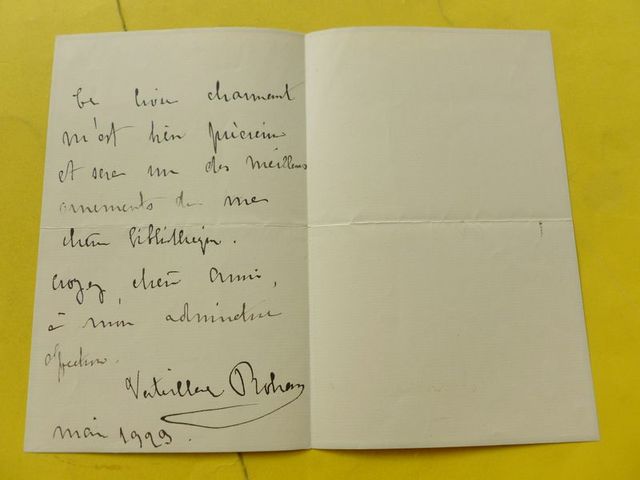 Ce livre charmant
m'est bien précieux
et sera un des meilleurs
ornements de ma
chère bibliothèque.
Croyez chère amie,
à mon
affection.
Verteillac Rohan
mai 1923.